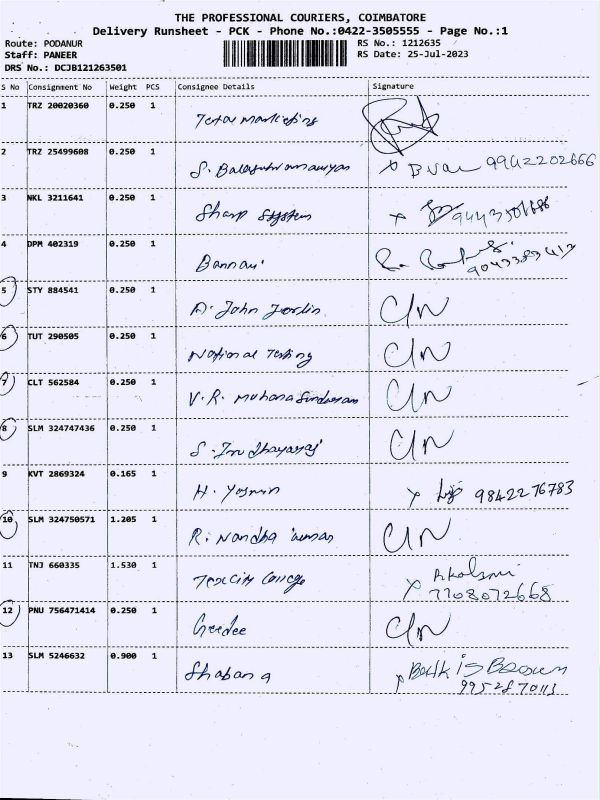 THE PROFESSIONAL COURIERS, COIMBATORE
Delivery Runsheet - PCK - Phone No.:0422-3505555 - Page No.:1
Route: PODANUR RS No.: 1212635
Staff: PANEER RS Date: 25-Jul-2023
DRS No.: DCJB121263501
S No Consignment No Weight PCS Consignee Details Signature
1 TRZ 20020360 0.250 1
2 TRZ 25499608 0.250 1 S. 9942202666
3 NKL 3211641 0.250 1 Sharp System
4 DPM 402319 0.250 1 Bannari
5 STY 884541 0.250 1 A. John C/N
6 TUT 290505 0.250 1 National Testing C/N
7 CLT 562584 0.250 1 V. R. C/N
8 SLM 324747436 0.250 1 S. C/N
9 KVT 2869324 0.165 1 H. Yasmin x 9842276783
10 SLM 324750571 1.205 1 R. Nandha C/N
11 TNJ 660335 1.530 1 College x 7708072668
12 PNU 756471414 0.250 1 Geedee C/N
13 SLM 5246632 0.900 1 Shabana